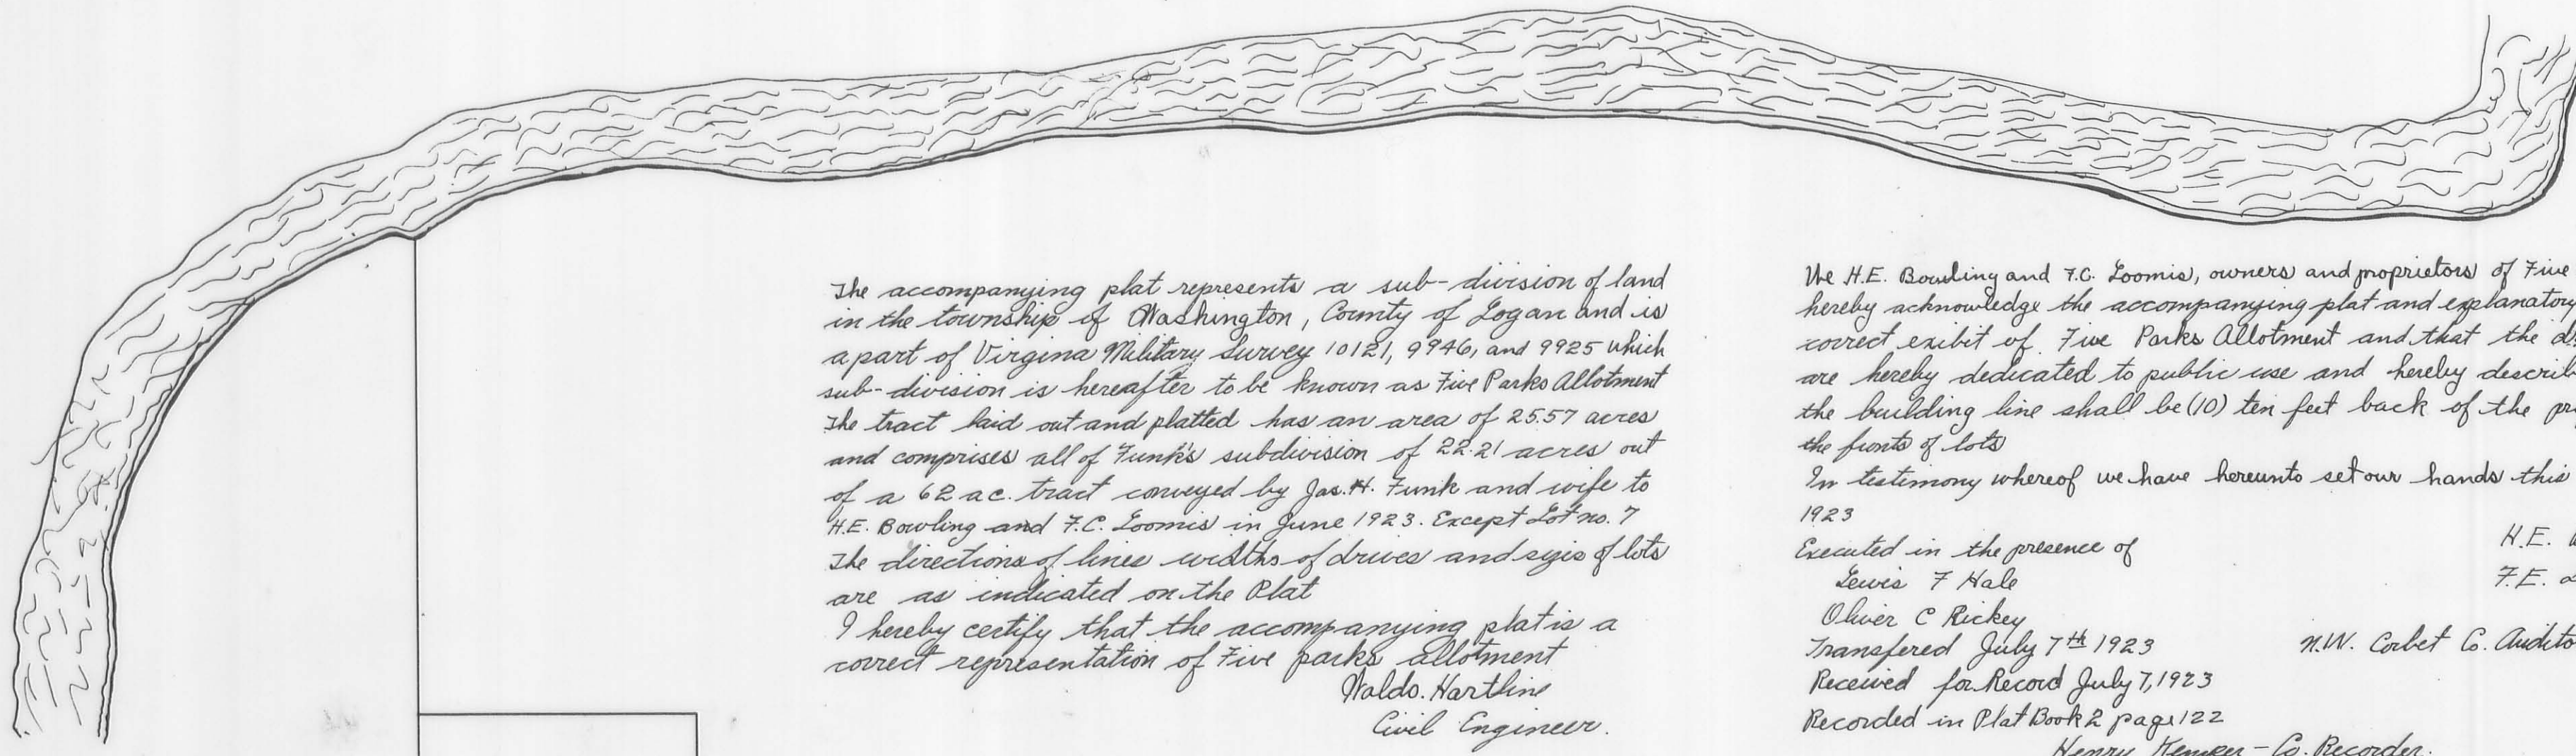 The accompanying plat represents a sub-division of land
in the township of Washington, County of Logan and is
a part of Virgina Military Survey 10121, 9946, and 9925 which
sub-division is hereafter to be known as Five Parks Allotment
The tract laid out and platted has an area of 25.57 acres
and comprises all of Funk's subdivision of 22.21 acres out
of a 62 ac. tract conveyed by Jas. H. Funk and wife to
H.E. Bowling and F.C. Loomis in June 1923. Except Lot no. 7
The directions of lines widths of drives and sizes of lots
are as indicated on the Plat
I hereby certify that the accompanying plat is a
correct representation of Five parks allotment
Waldo. Hartline
Civil Engineer.
We H.E. Bowling and F.C. Loomis, owners and proprietors of Five
hereby acknowledge the accompanying plat and explanatory
correct exibit of Five Parks Allotment and that the
are hereby dedicated to public use and hereby describ
the building line shall be (10) ten feet back of the
the fronts of lots
In testimony whereof we have hereunto set our hands this
1923
Executed in the presence of
H.E.
Lewis F Hale
F.E.
Oliver C Rickey
Transfered July 7th 1923 N.W. Corbet Co. Audito
Received for Record July 7, 1923
Recorded in Plat Book 2 page 122
Henry Co. Recorder.